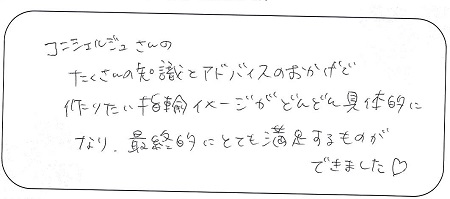 コンシェルジュさんの
たくさんの知識とアドバイスのおかげで
作りたい指輪イメージがどんどん具体的に
なり、最終的にとても満足するものが
できました♡